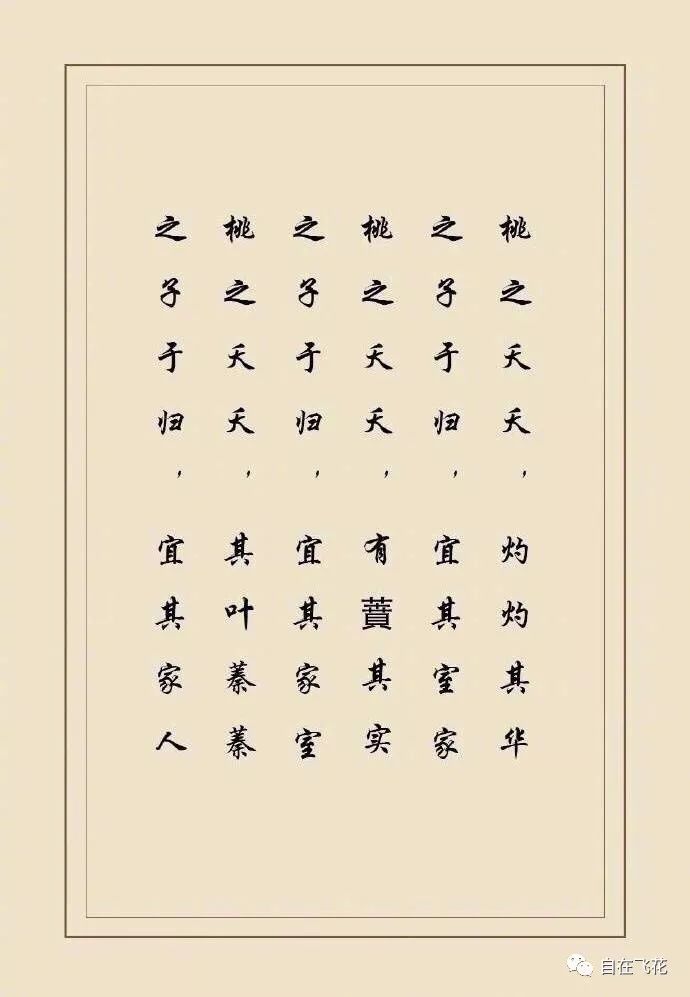 桃之夭夭，灼灼其华
之子于归，宜其室家
桃之夭夭，有蕡其实
之子于归，宜其家室
桃之夭夭，其叶蓁蓁
之子于归，宜其家人
自在飞花